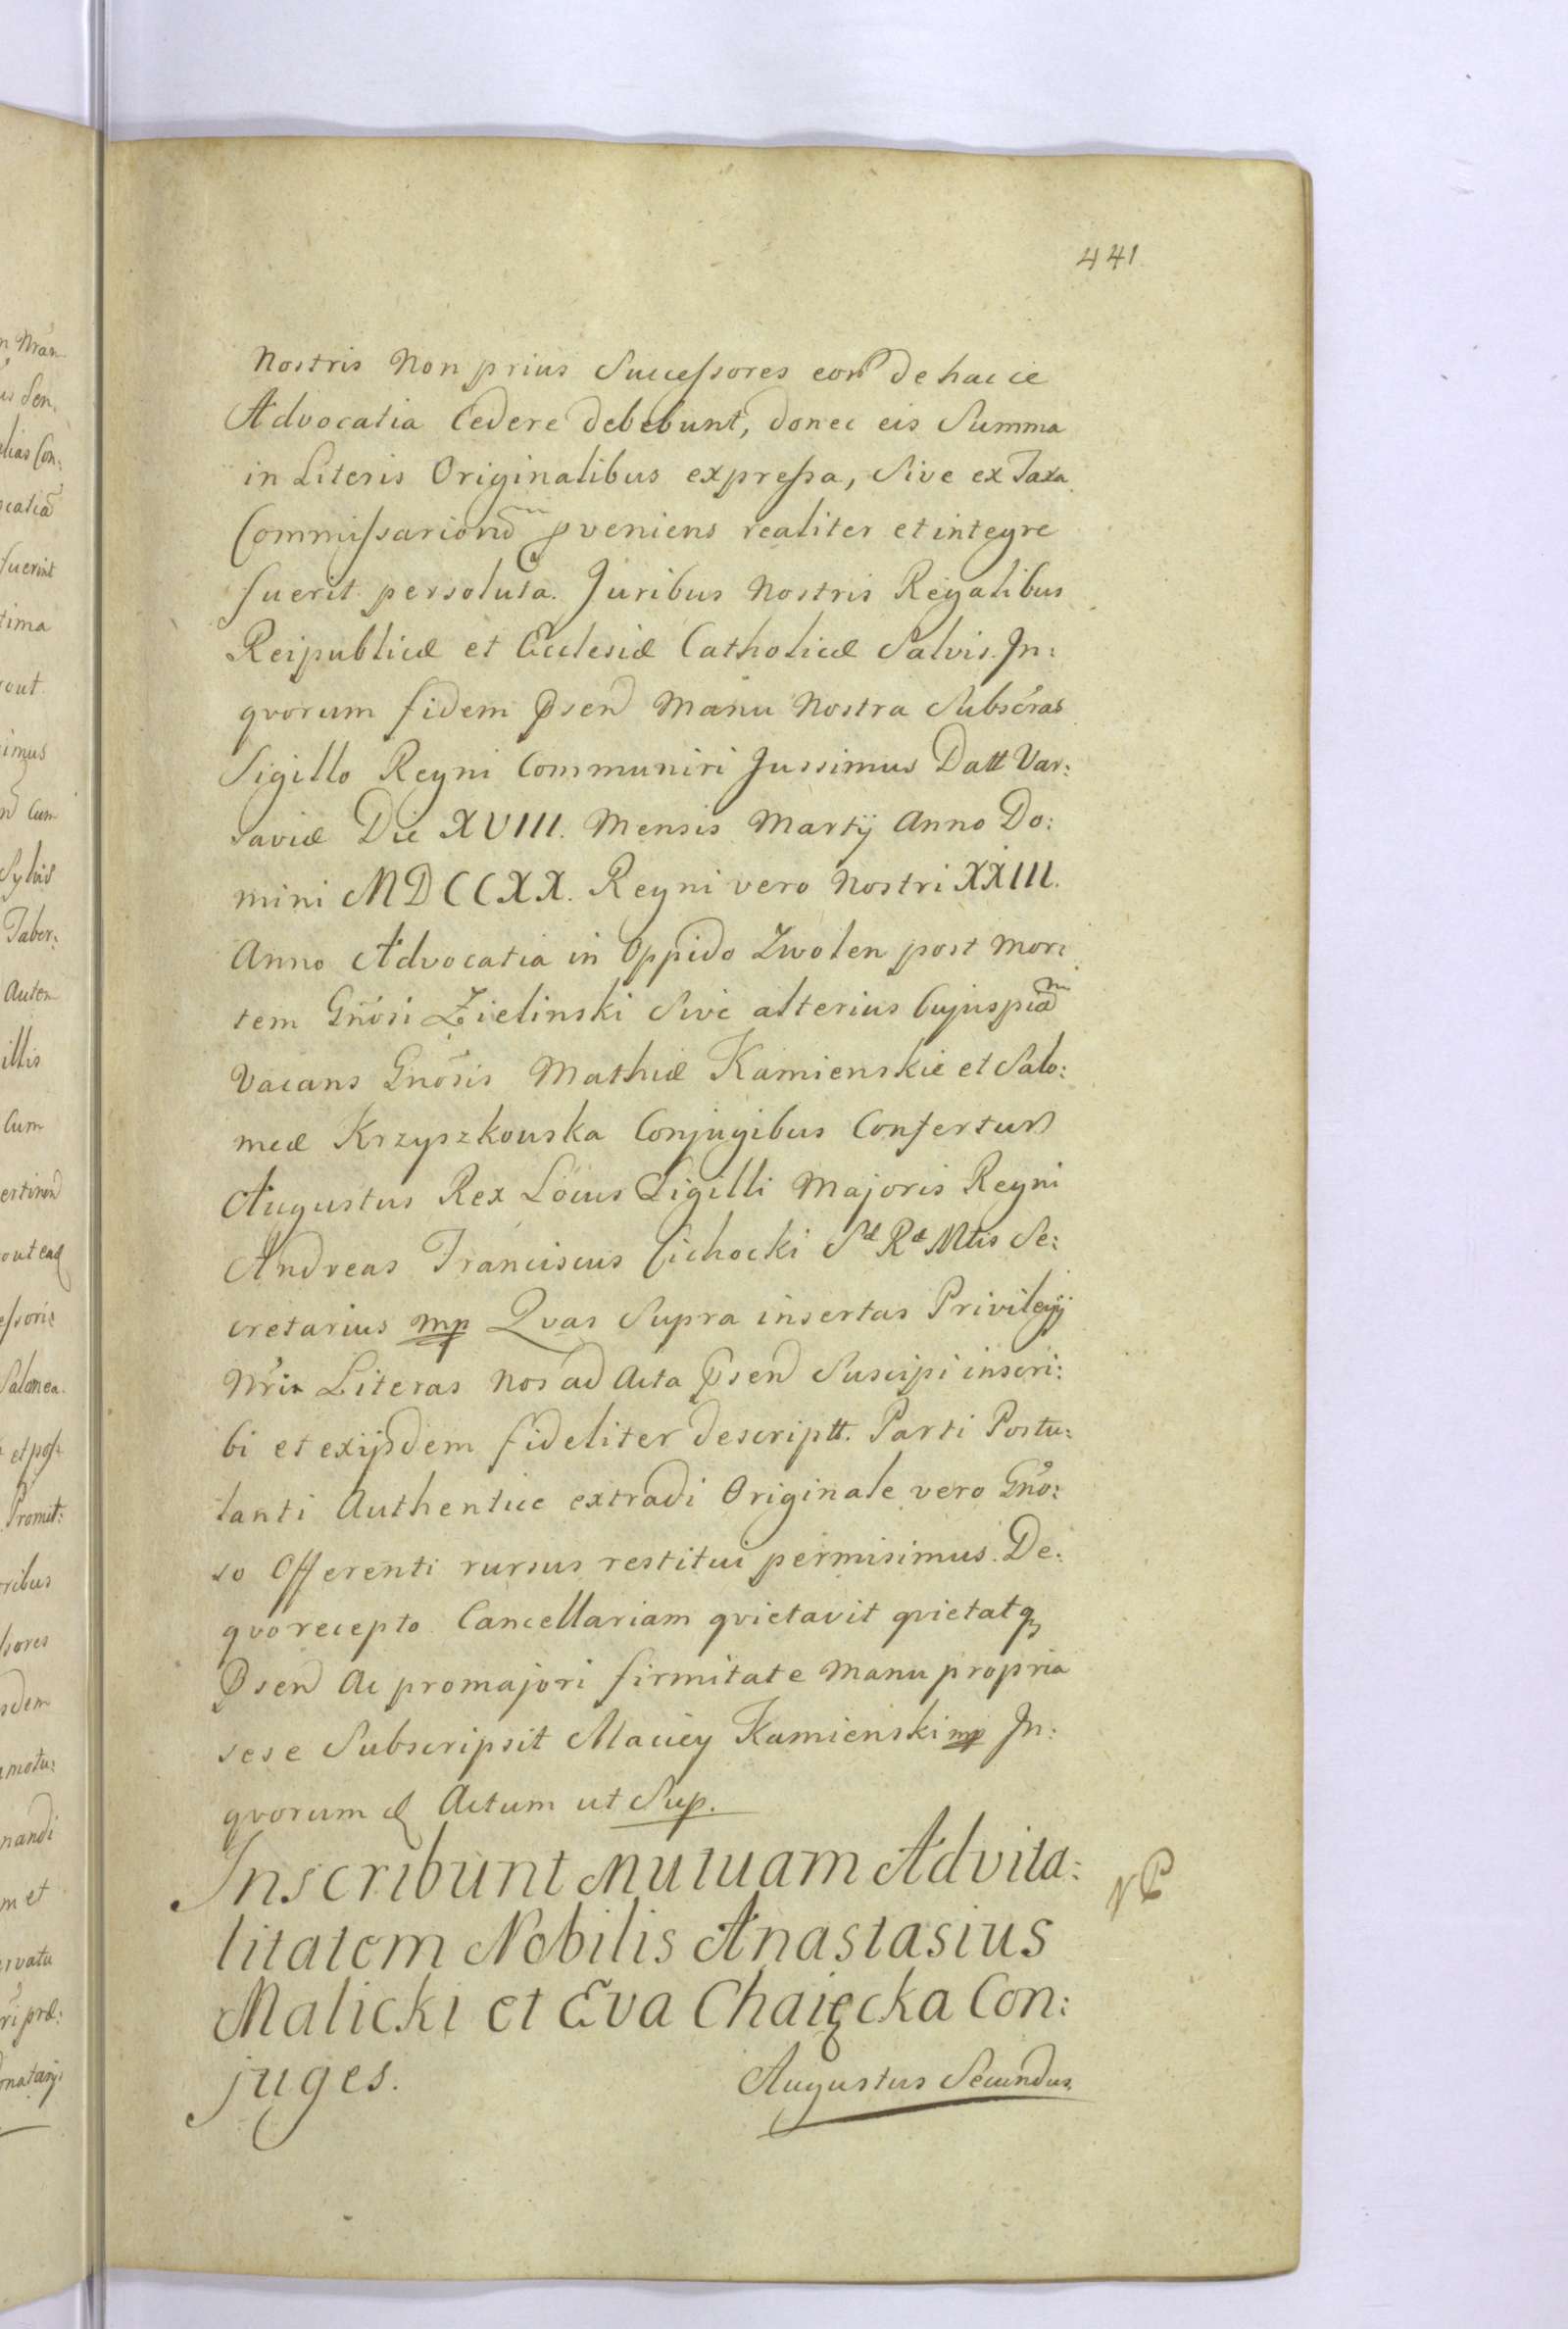 441.
Nostris Non prius Successores eord de hac ce
Advocatia Cedere debebunt, donec eis Summa
in Literis Originalibus expressa, Sive ex Taxa
Commissariond pveniens realiter et integre
fuerit persoluta. Juribus Nostris Regalibus
Reipublicæ et Ecclesiæ Catholicæ Salvis. In:
qvorum fidem Psend Manu Nostra Subscras
Sigillo Regni Communiri Jussimus Datt Var:
saviæ Die XVIII. Mensis Martij Anno Do:
mini MDCCXX. Regni vero Nostri XXIII.
Anno Advocatia in Oppido Zwolen post Mor:
tem Gnosi Zielinski Sive alterius Cujuspiam
Vacans Gnosis Mathiæ Kamienskie et Salo:
meæ Krzyszkouska Conjugibus Confertur
Augustus Rex Locus Sigilli Majoris Regni
Andreas Franciscus Cichocki Sæ Ræ Mtis Se:
cretarius mp Qvas Supra insertas Privilegij
Nris Literas Nos ad Acta Psend Suscipi inscri:
bi et exijsdem fideliter descriptt. Parti Postu:
lanti Authentice extradi Originale vero Gno:
so Offerenti rursus restitui permisimus. De:
qvo recepto Cancellariam qvietavit qvietatq
Psend Ac promajori firmitate Manu propria
sese Subscripsit Maciey Kamienski mp In:
qvorum & Actum ut Sup.
Inscribunt Mutuam Advita:
litatem Nobilis Anastasius
Malicki et Eva Chaięcka Con:
juges.
Augustus Secundus
NP